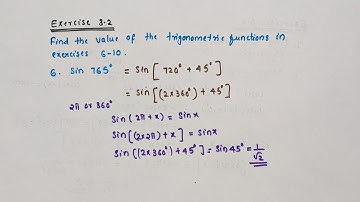 Exercise 3.2
Find the value of the trigonometric functions in
exercises 6-10.
6. Sin 765° = Sin[ 720° + 45° ]
= Sin[(2×360°) + 45° ]
2π or 360°
Sin(2π + x) = Sinx
Sin[(2×2π) + x ] = Sinx
Sin[(2×360°) + 45° ] = Sin 45° = 1/√2